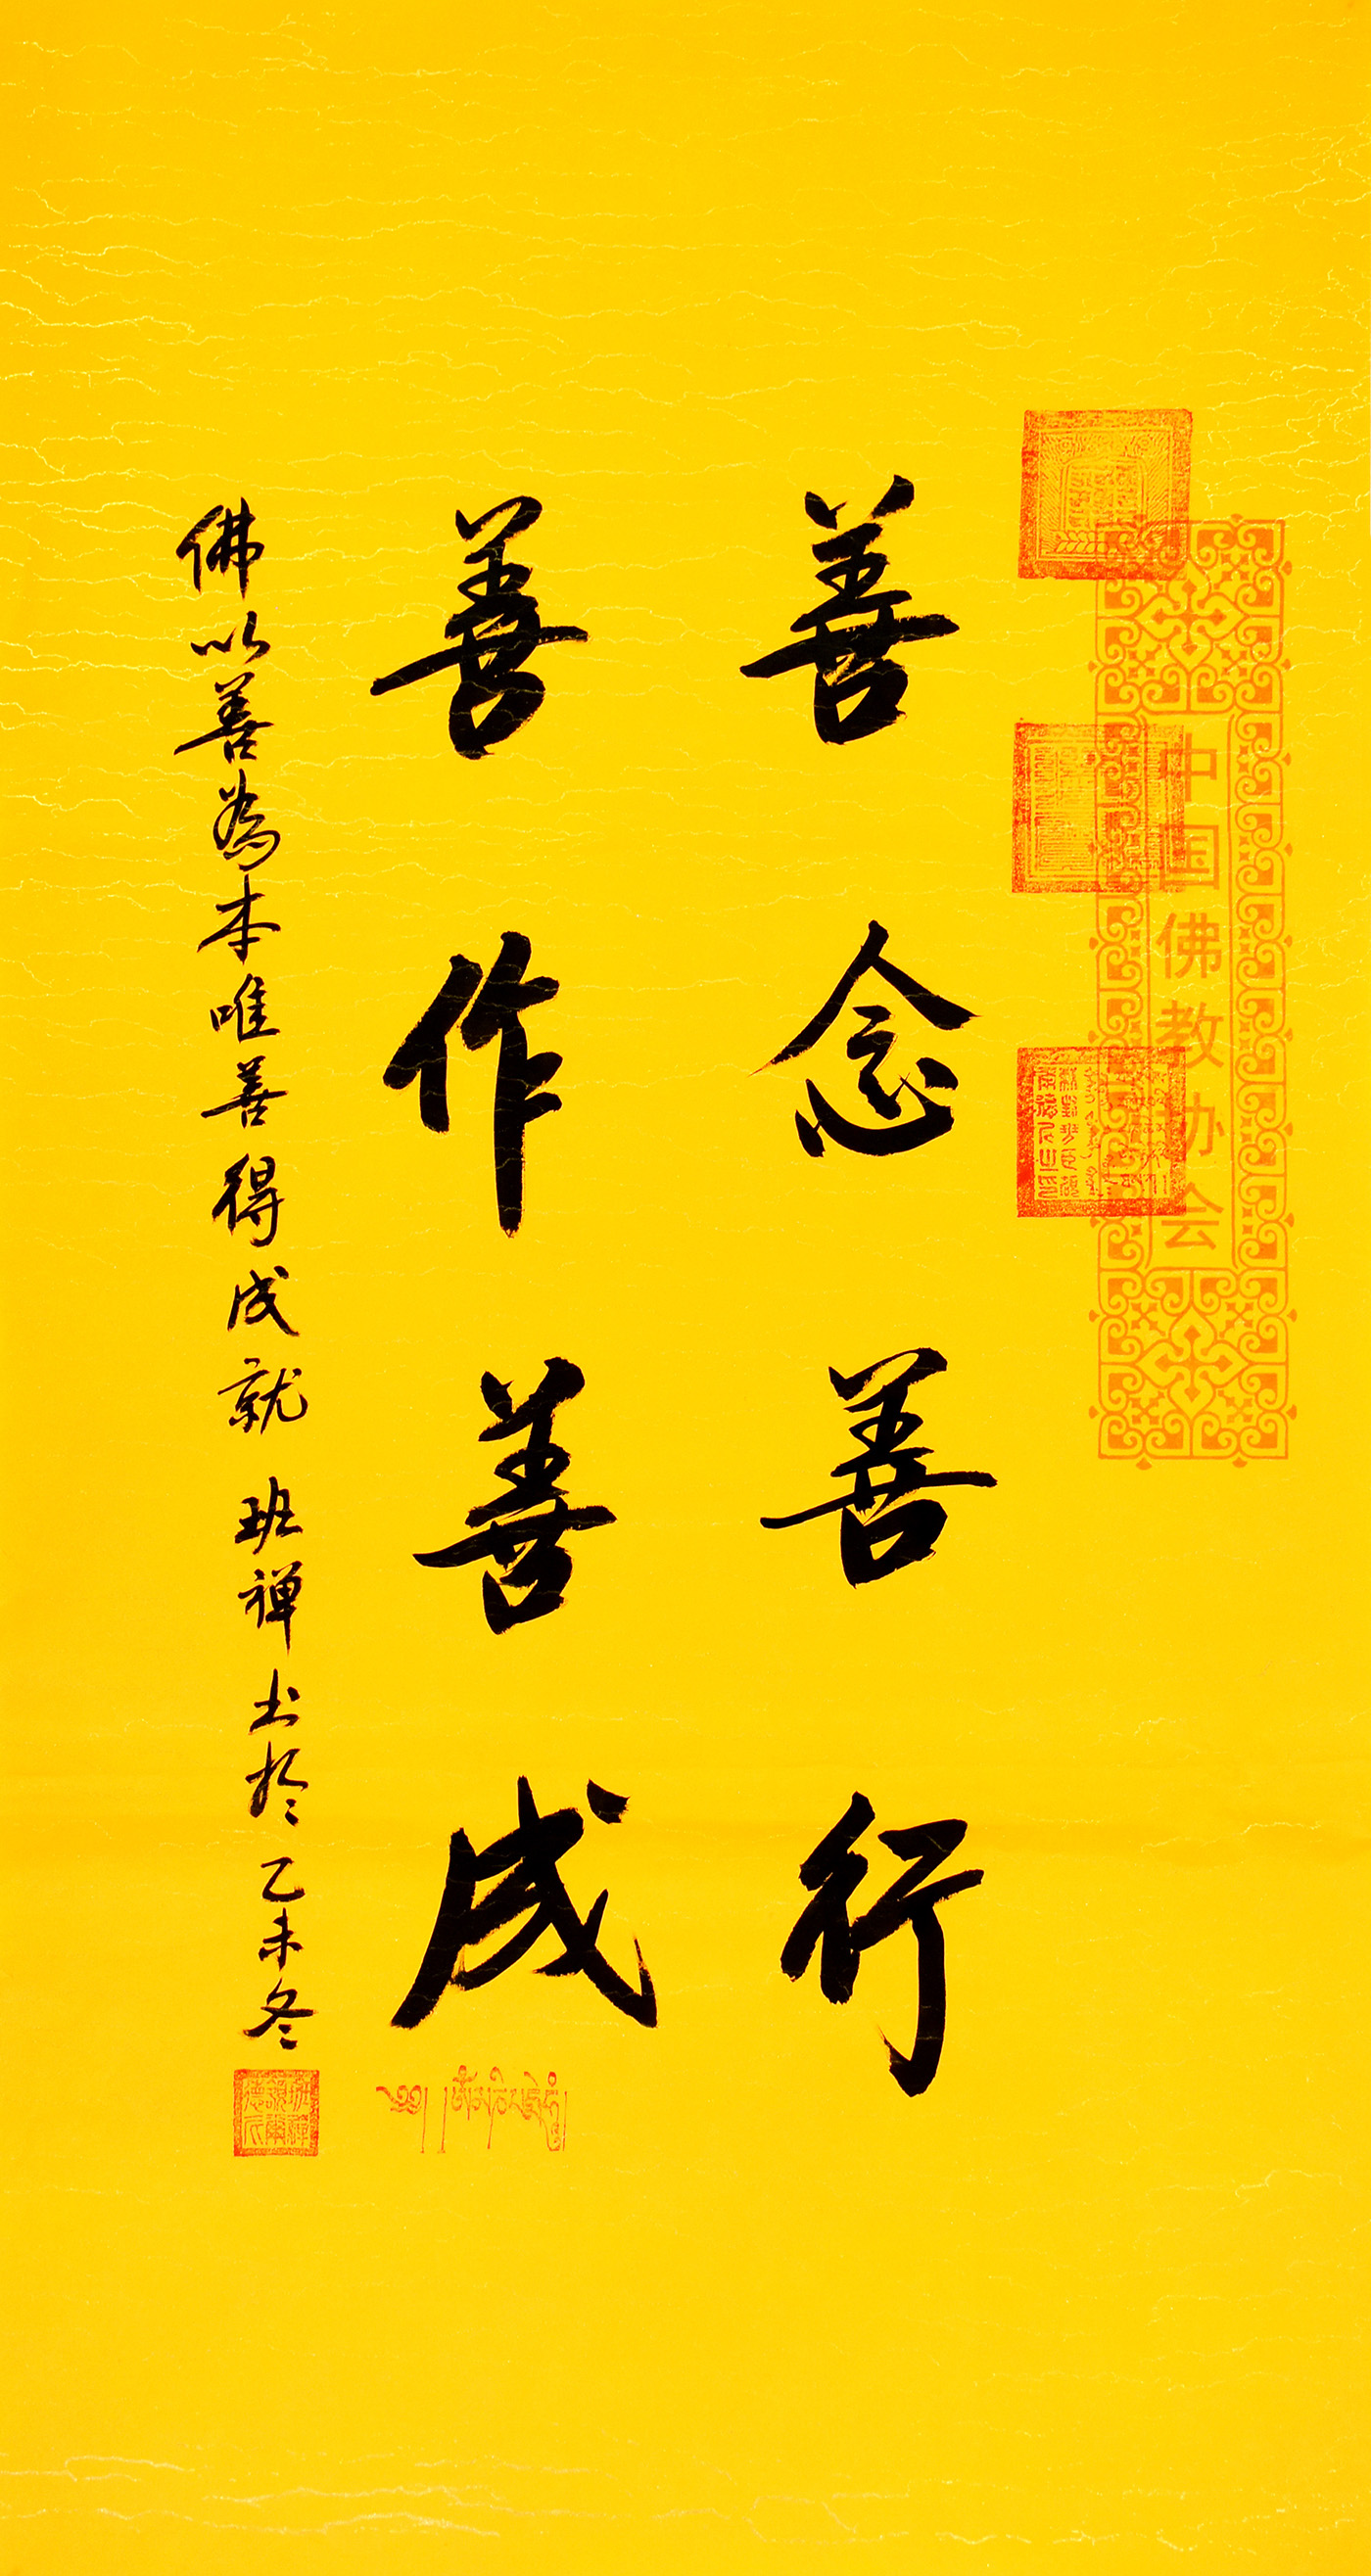 中国佛教协会
善念善行
善作善成
佛以善為本唯善得成就 班禅书於乙未冬
༄༅། །ཨོཾ་མ་ཎི་པདྨེ་ཧཱུྃ།